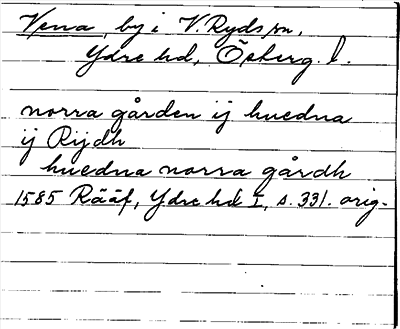 Vena, by i V. Ryds sn,
Ydre hd, Österg. l.
norra gården ij huedna
ij Rijdh
huedna norra gårdh
1585 Rääf, Ydre hd I, s. 331. orig.